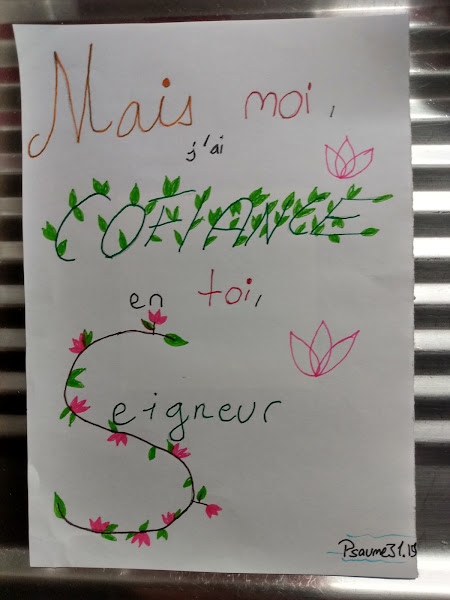 Mais moi,
j'ai
COFIANCE
en toi,
Seigneur
Psaume 31.15